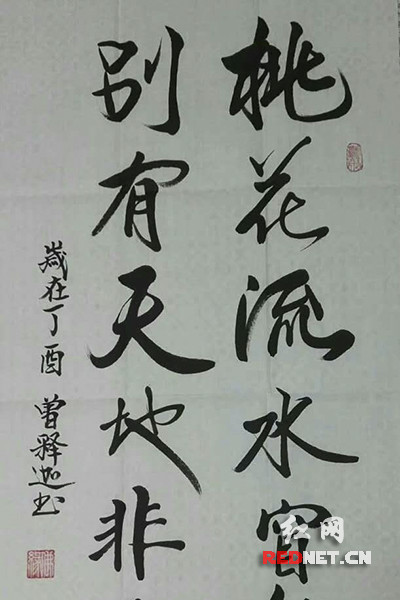 桃花流水窅
别有天地非
歲在丁酉 曾释迦书
红网
REDNET.CN